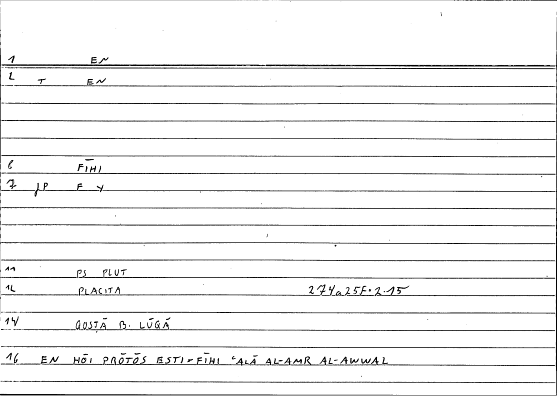 1 EN
2 T EN
6 FĪHI
7 JP F Y
11 PS PLUT
12 PLACITA 274a25F.2.15
14 QOSṬĀ B. LŪQĀ
16 EN HŌI PRŌTŌS ESTI = FĪHI ʿALĀ AL-AMR AL-AWWAL